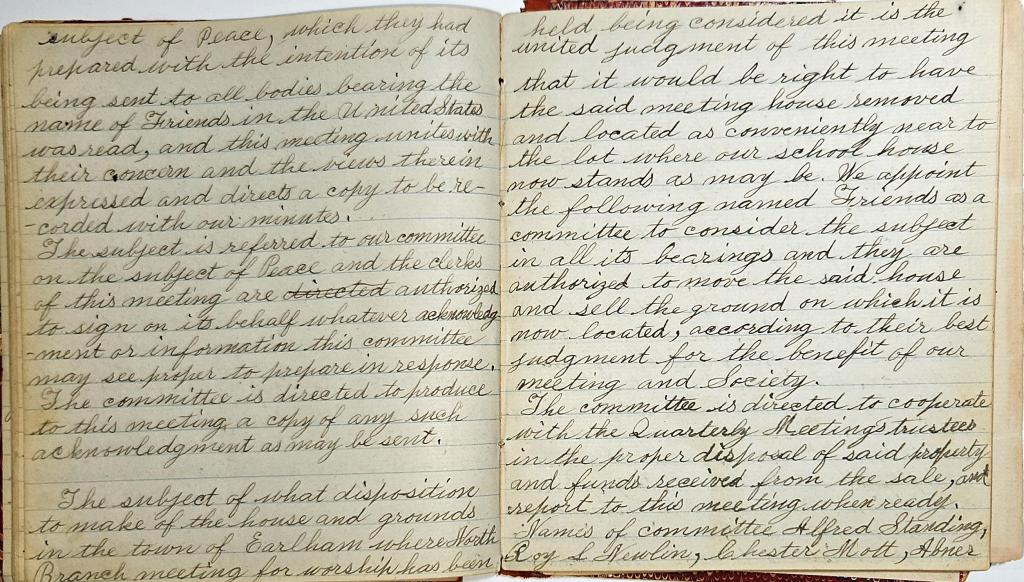 subject of Peace, which they had
prepared with the intention of its
being sent to all bodies bearing the
name of Friends in the United States
was read, and this meeting unites with
their concern and the views therein
expressed and directs a copy to be re-
-corded with our minutes.
The subject is referred to our committee
on the subject of Peace and the clerks
of this meeting are directed authorized
to sign on its behalf whatever acknowledg-
-ment or information this committee
may see proper to prepare in response.
The committee is directed to produce
to this meeting a copy of any such
acknowledgment as may be sent.
The subject of what disposition
to make of the house and grounds
in the town of Earlham where North
Branch meeting for worship has been
held being considered it is the
united judgment of this meeting
that it would be right to have
the said meeting house removed
and located as conveniently near to
the lot where our school house
now stands as may be. We appoint
the following named Friends as a
committee to consider the subject
in all its bearings and they are
authorized to move the said house
and sell the ground on which it is
now located, according to their best
judgment for the benefit of our
meeting and Society.
The committee is directed to cooperate
with the Quarterly Meetings trustees
in the proper disposal of said property
and funds received from the sale, and
report to this meeting when ready.
Names of committee Alfred Standing,
Roy L Newlin, Chester Mott, Abner